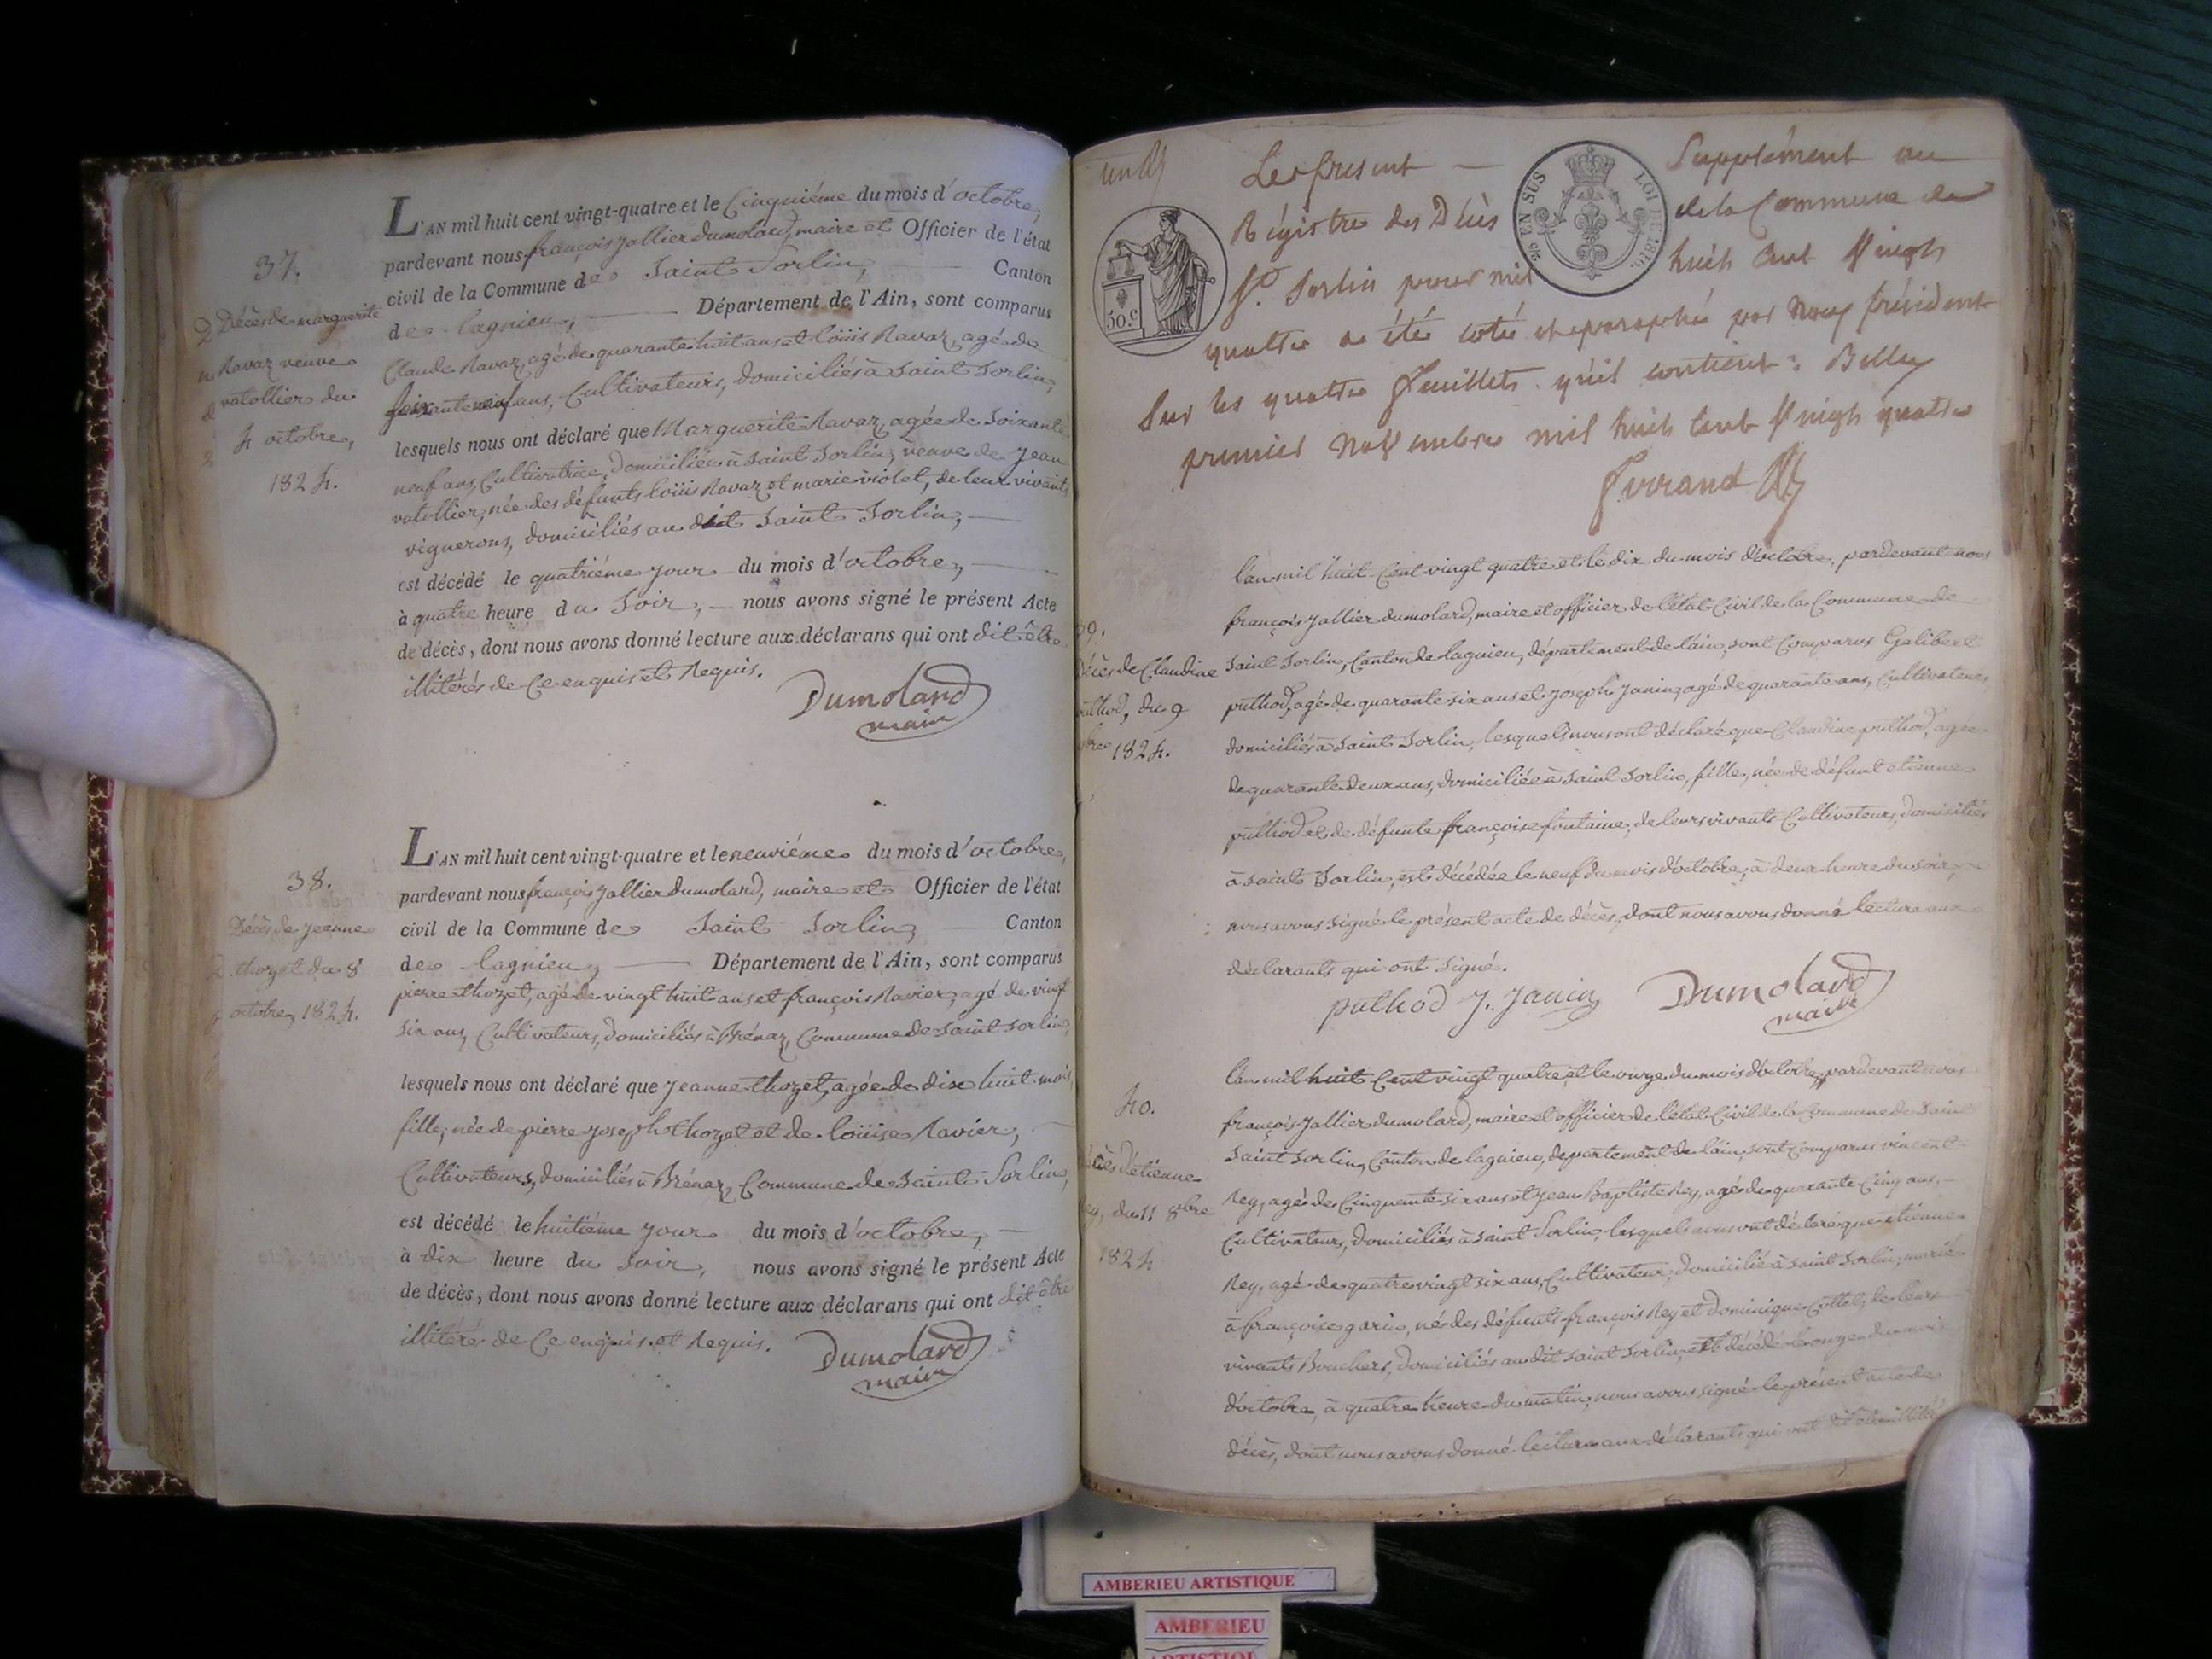 37.
Décès de marguerite
Ravaz veuve
vatollier du
4 octobre,
1824.
L'AN mil huit cent vingt-quatre et le Cinquiéme du mois d'octobre,
pardevant nous françois Jallier dumolard, maire et Officier de l'état
civil de la Commune de Saint Sorlin, Canton
de lagnieu, Département de l'Ain, sont comparus
Claude Ravaz, agé de quarante huit ans et loüis Ravaz, agé de
soixante neuf ans, Cultivateurs, domiciliés à Saint Sorlin,
lesquels nous ont déclaré que Marguerite Ravaz, agée de Soixante
neuf ans, Cultivatrice, domiciliée à Saint Sorlin, veuve de Jean
vatollier, née des défunts loüis Ravaz et marie violet, de leur vivants
vignerons, domiciliés au dit Saint Sorlin,
est décédé le quatriéme jour du mois d'octobre,
à quatre heure du Soir, nous avons signé le présent Acte
de décès, dont nous avons donné lecture aux déclarans qui ont dit être
illitérés de Ce enquis et Requis.
Dumolard
maire
38.
Décès de Jeanne
thozet du 8
octobre, 1824.
L'AN mil huit cent vingt-quatre et le neuviéme du mois d'octobre,
pardevant nous françois Jallier dumolard, maire et Officier de l'état
civil de la Commune de Saint Sorlin, Canton
de lagnieu, Département de l'Ain, sont comparus
pierre thozet, agé de vingt huit ans et françois Ravier, agé de vingt
Six ans, Cultivateurs, domiciliés à Brénaz, Commune de Saint Sorlin,
lesquels nous ont déclaré que Jeanne thozet, agée de dix huit mois,
fille, née de pierre Joseph thozet et de loüise Ravier,
Cultivateurs, domiciliés à Brénaz, Commune de Saint Sorlin,
est décédé le huitiéme jour du mois d'octobre,
à dix heure du Soir, nous avons signé le présent Acte
de décès, dont nous avons donné lecture aux déclarans qui ont dit être
illitérés de Ce enquis et Requis.
Dumolard
maire
Le present Supplément au
Régistre des Décès de la Commune de
St. Sorlin pour mil huit Cent Vingt
quatre a été coté et paraphé par Nous président
Sur les quatre feuillets qu'il contient : Belley
premier Novembre mil huit Cent Vingt quatre
50.c
EN SUS
LOI DE 1816.
39.
Décès de Claudine
puthod, du 9
8bre 1824.
l'an mil huit Cent vingt quatre et le dix du mois d'octobre, pardevant nous
françois Jallier dumolard, maire et officier de l'état Civil de la Commune de
Saint Sorlin, Canton de lagnieu, département de l'ain, sont Comparus Galibert
puthod, agé de quarante six ans et Joseph Janin, agé de quarante ans, Cultivateurs,
domiciliés à Saint Sorlin, lesquels nous ont déclaré que Claudine puthod, agée
de quarante deux ans, domiciliée à Saint Sorlin, fille, née de défunt etienne
puthod et de défunte françoise fontaine, de leurs vivants Cultivateurs, domiciliés
à Saint Sorlin, est décédée le neuf du mois d'octobre, à deux heure du soir,
nous avons signé le présent acte de décès, dont nous avons donné lecture aux
déclarants qui ont Signé.
puthod J. Janin Dumolard
maire
40.
Décès d'étienne
Rey, du 11 8bre
1824
l'an mil huit Cent vingt quatre et le onze du mois d'octobre, pardevant nous
françois Jallier dumolard, maire et officier de l'état Civil de la Commune de Saint
Saint Sorlin, Canton de lagnieu, departement de l'ain, sont Comparus vincent
Rey, agé de Cinquante six ans et Jean Baptiste Rey, agé de quarante Cinq ans,
Cultivateurs, domiciliés à Saint Sorlin, lesquels nous ont déclaré que etienne
Rey, agé de quatre vingt six ans, Cultivateur, domicilié à Saint Sorlin, marié
à françoise garin, né des défunts françois Rey et dominique Cottet, de leurs
vivants Bouchers, domiciliés au dit Saint Sorlin, est décédé le onze du mois
d'octobre, à quatre heure du matin, nous avons signé le présent acte de
décès, dont nous avons donné lecture aux déclarants qui ont dit être illitérés
AMBERIEU ARTISTIQUE
AMBERIEU
ARTISTIQUE